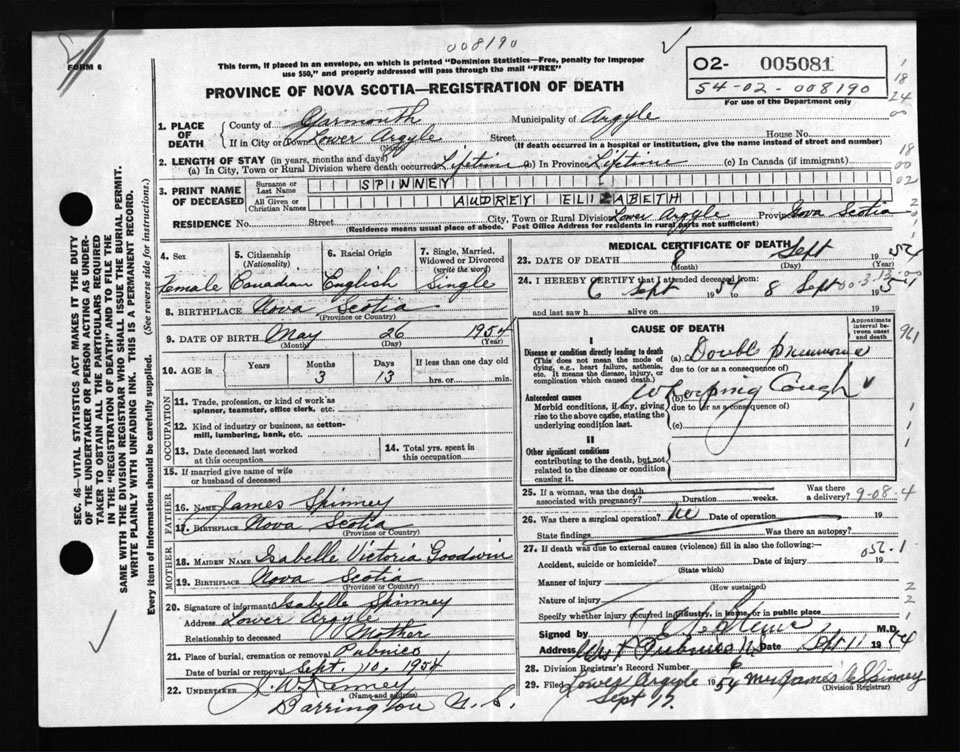 008190
FORM 6
This form, if placed in an envelope, on which is printed "Dominion Statistics—Free, penalty for improper
use $50," and properly addressed will pass through the mail "FREE"
O2- 005081
54-02-008190
For use of the Department only
PROVINCE OF NOVA SCOTIA—REGISTRATION OF DEATH
1. PLACE OF DEATH
County of Yarmouth Municipality of Argyle
If in City or Town Lower Argyle Street House No.
(Name) (If death occurred in a hospital or institution, give the name instead of street and number)
2. LENGTH OF STAY (in years, months and days)
(a) In City, Town or Rural Division where death occurred Lifetime (b) In Province Lifetime (c) In Canada (if immigrant)
3. PRINT NAME OF DECEASED
Surname or Last Name SPINNEY
All Given or Christian Names AUDREY ELIZABETH
RESIDENCE No. Street City, Town or Rural Division Lower Argyle Province Nova Scotia
(Residence means usual place of abode. Post Office Address for residents in rural parts not sufficient)
4. Sex 5. Citizenship (Nationality) 6. Racial Origin 7. Single, Married, Widowed or Divorced (write the word)
Female Canadian English Single
8. BIRTHPLACE Nova Scotia
(Province or Country)
9. DATE OF BIRTH May 26 1954
(Month) (Day) (Year)
10. AGE in Years Months Days If less than one day old
3 13 hrs. or min.
OCCUPATION
11. Trade, profession, or kind of work as
spinner, teamster, office clerk, etc.
12. Kind of industry or business, as cotton-
mill, lumbering, bank, etc.
13. Date deceased last worked
at this occupation
14. Total yrs. spent in this occupation
15. If married give name of wife
or husband of deceased
FATHER
16. NAME James Spinney
17. BIRTHPLACE Nova Scotia
(Province or Country)
MOTHER
18. MAIDEN NAME Isabelle Victoria Goodwin
19. BIRTHPLACE Nova Scotia
(Province or Country)
20. Signature of informant Isabelle Spinney
Address Lower Argyle
Relationship to deceased Mother
21. Place of burial, cremation or removal Pubnico
Date of burial or removal Sept. 10, 1954
22. UNDERTAKER J. W. Kenney
(Name and address)
Barrington N. S.
MEDICAL CERTIFICATE OF DEATH
23. DATE OF DEATH 8 Sept 1954
(Month) (Day) (Year)
24. I HEREBY CERTIFY that I attended deceased from:
6 Sept 1954 8 Sept 195
and last saw h alive on 19
CAUSE OF DEATH
Approximate interval between onset and death
I
Disease or condition directly leading to death
(This does not mean the mode of dying, e.g., heart failure, asthenia, etc. It means the disease, injury, or complication which caused death.)
(a) Double Pneumonia
due to (or as a consequence of)
Antecedent causes
Morbid conditions, if any, giving rise to the above cause, stating the underlying condition last.
Whooping Cough
due to (or as a consequence of)
(c)
II
Other significant conditions
contributing to the death, but not related to the disease or condition causing it.
961
25. If a woman, was the death
associated with pregnancy? Duration weeks. Was there a delivery? 9-08-4
26. Was there surgical operation? no Date of operation 19
State findings Was there an autopsy?
27. If death was due to external causes (violence) fill in also the following:—
Accident, suicide or homicide? Date of injury 19
056.1
(State which)
Manner of injury
(How sustained)
Nature of injury
Specify whether injury occurred in industry, in home, or in public place
Signed by M.D.
Address West Pubnico N.S. Date Sept 11 1954
28. Division Registrar's Record Number 6
29. Filed Lower Argyle 1954 Mrs James C Spinney
(Division Registrar)
Sept 17.
SEC. 46—VITAL STATISTICS ACT MAKES IT THE DUTY
OF THE UNDERTAKER OR PERSON ACTING AS UNDER-
TAKER TO OBTAIN ALL THE PARTICULARS REQUIRED
IN THE "REGISTRATION OF DEATH" AND TO FILE THE
SAME WITH THE DIVISION REGISTRAR WHO SHALL ISSUE THE BURIAL PERMIT.
WRITE PLAINLY WITH UNFADING INK. THIS IS A PERMANENT RECORD.
Every item of information should be carefully supplied. (See reverse side for instructions.)